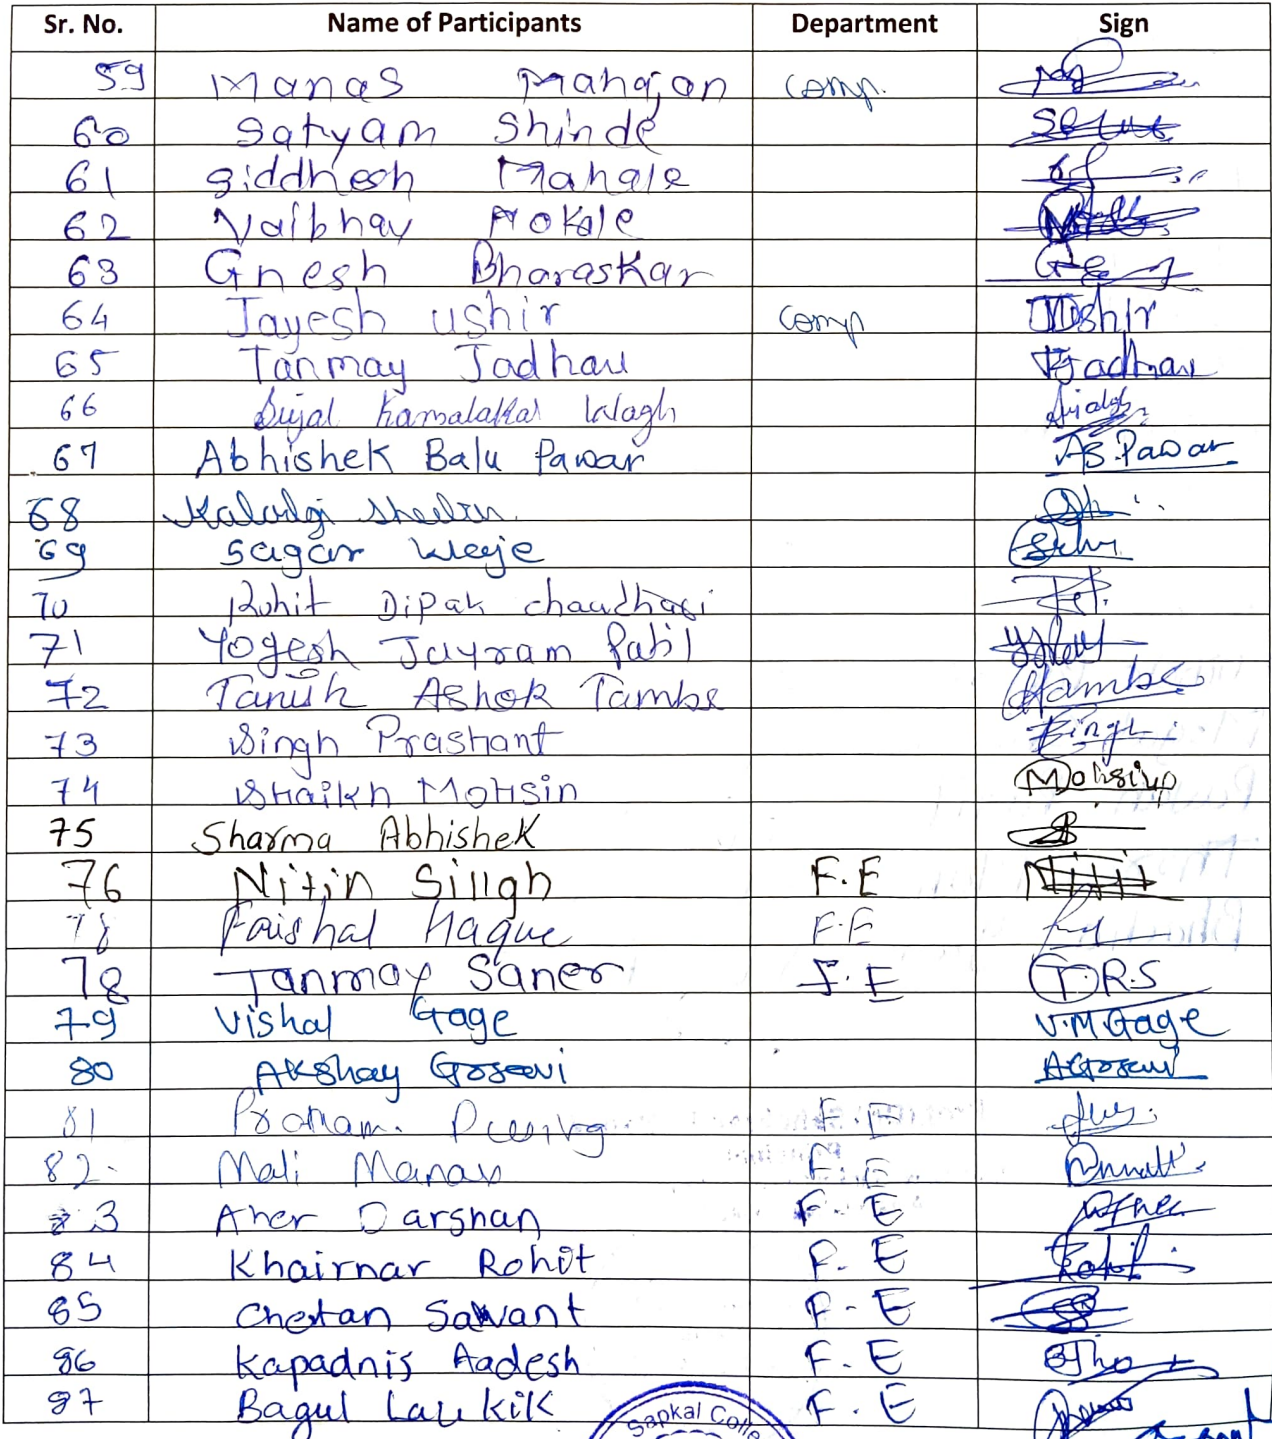 Sr. No. Name of Participants Department Sign
59 Manas Mahajan Comp.
60 Satyam Shinde
61 Siddhesh Mahale
62 Vaibhav Mokale
63 Gnesh Bharaskar
64 Jayesh Ushir Comp Ushir
65 Tanmay Jadhav TJadhav
66 Sujal Kamalakar Wagh
67 Abhishek Balu Pawar AB.Pawar
68 Kaladgi
69 Sagar
70 Rohit Dipak Chaudhari
71 Yogesh Jayram Patil
72 Tanish Ashok Tambe Tambe
73 Singh Prashant Singh
74 Shaikh Mohsin Mohsin
75 Sharma Abhishek
76 Nitin Singh F.E Nitin
78 Faishal Haque F.E
78 Tanmay Saner F.E T.R.S
79 Vishal Gage V.M.Gage
80 Akshay Gosavi AGosavi
81 Pratham. F.E
82 Mali Manav F.E
83 Aher Darshan F.E
84 Khairnar Rohit F.E
85 Chetan Sawant F-E
86 Kapadnis Aadesh F.E
87 Bagul Laukik F.E
Sapkal Colle